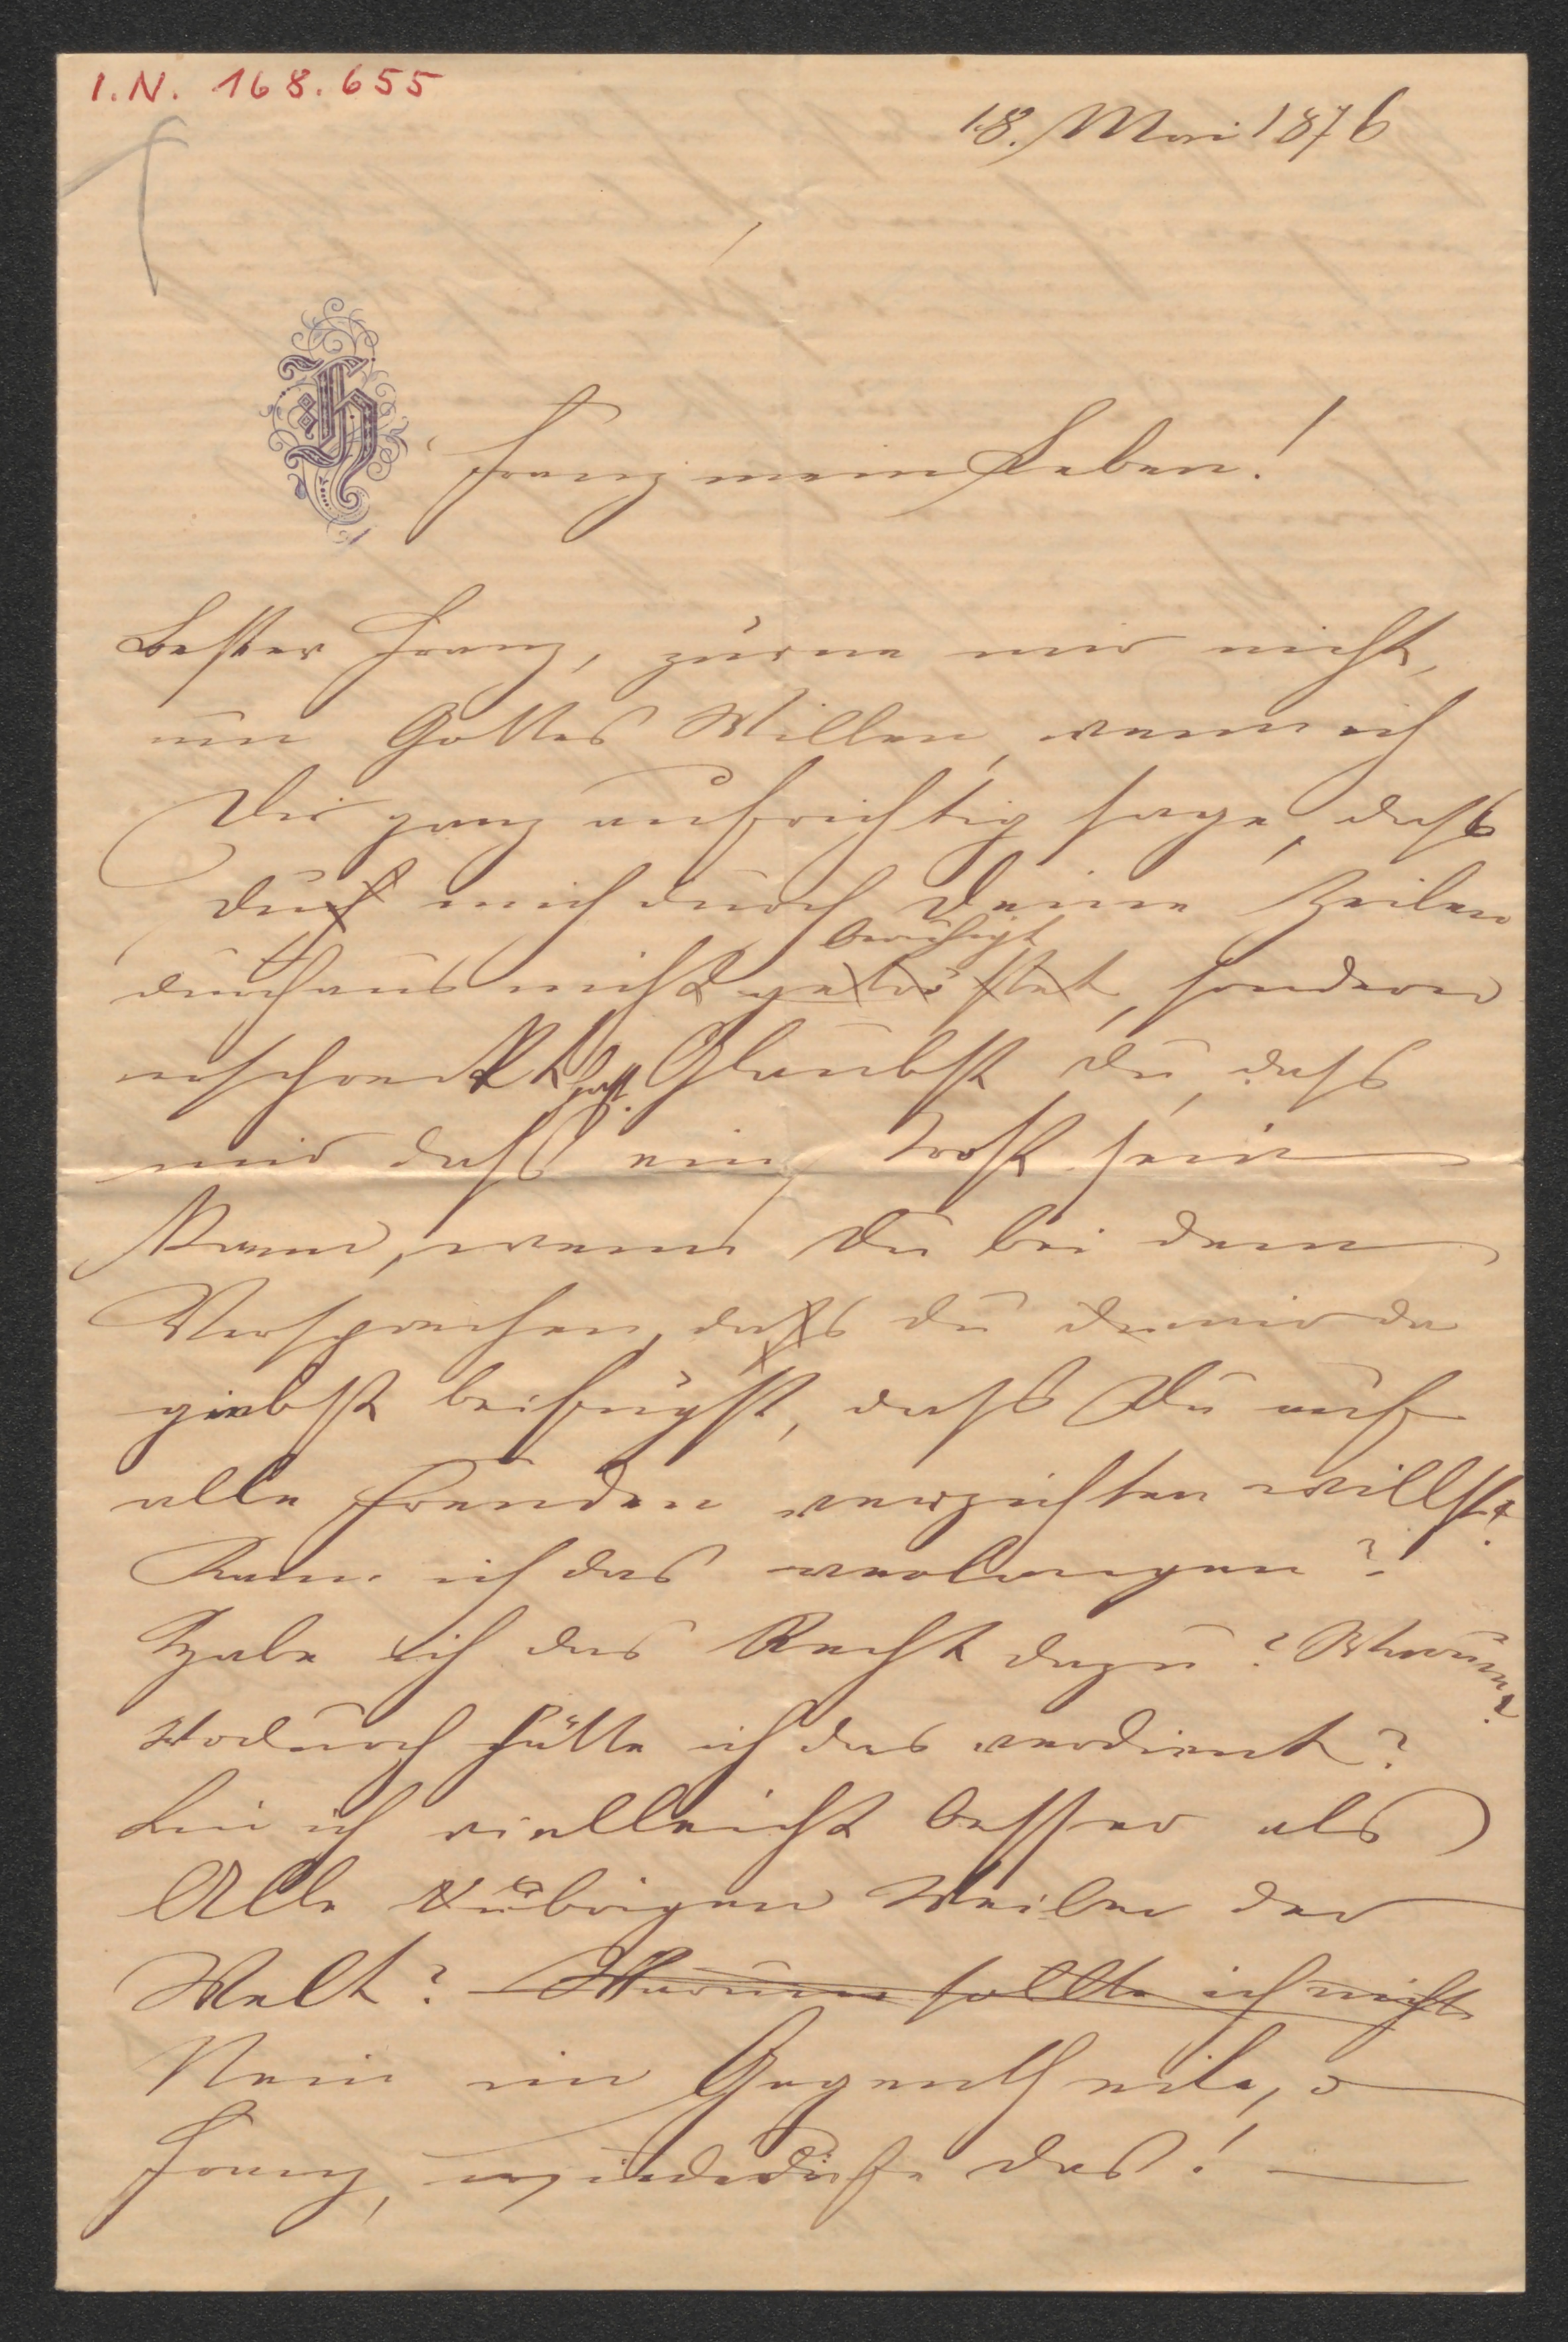 I.N. 168.655
18. Mai 1876
H
Franz mein Leben!
Bester Franz, zürne mir nicht,
um Gottes Willen, wenn ich
Dir ganz aufrichtig sage, dass
du mich durch Deine Zeilen
beruhigt
durchaus nicht getröstet, sondern
erschreckt hast. Glaubst du, dass
mir dass ein Trost sein
kann, wenn Du bei dem
Versprechen, das du mir da
giebst beifügst, dass Du auf
alle Freuden verzichten willst?
Kann ich das verlangen?
Habe ich das Recht dazu? Warum?
Wodurch hätte ich das verdient?
Bin ich vielleicht besser als
Alle übrigen Weiber der
Welt? Warum sollte ich nicht
Nein im Gegentheile, o
Franz, wiederrufe das!